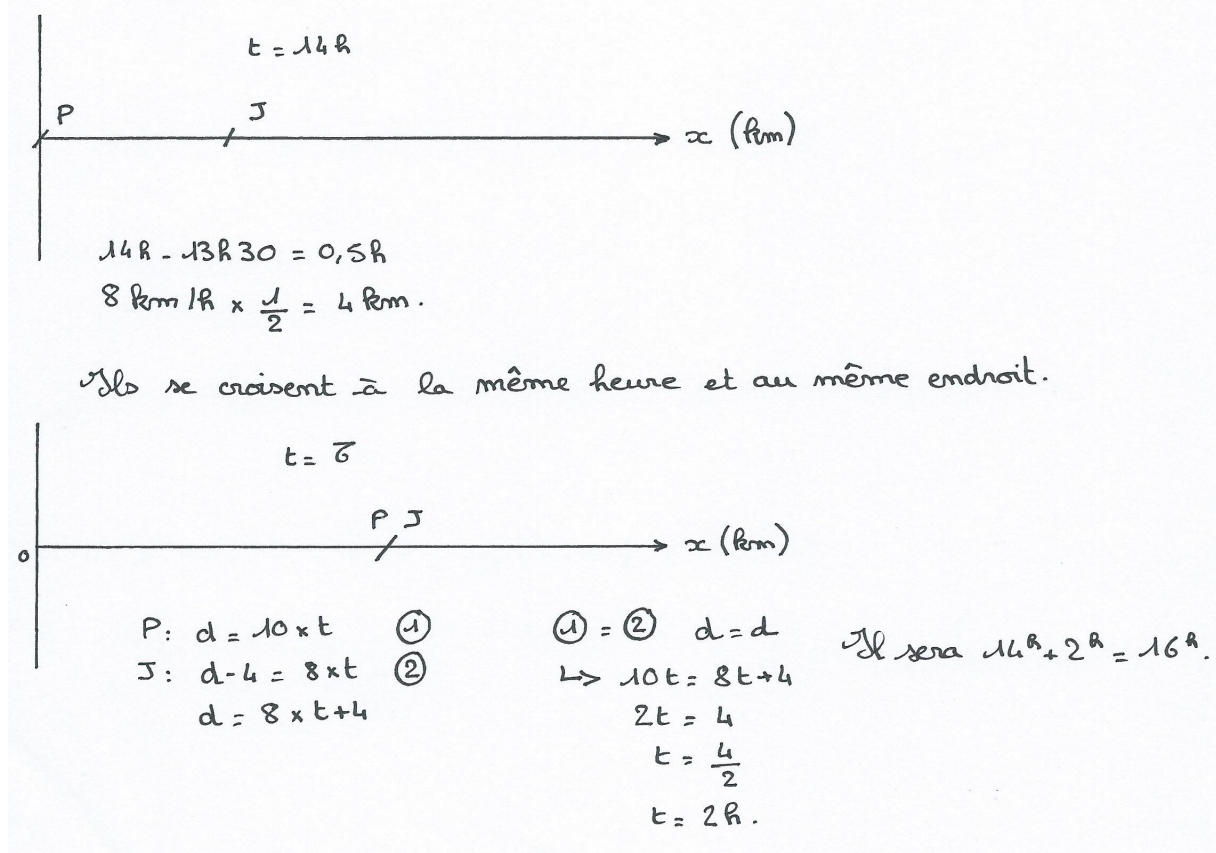 t = 14h
P J
x (km)
14h - 13h30 = 0,5h
8 km/h × 1/2 = 4 km.
Ils se croisent à la même heure et au même endroit.
t = ๖
P J
0 x (km)
P: d = 10 × t ①
J: d - 4 = 8 × t ②
d = 8 × t + 4
① = ② d = d
↳ 10t = 8t + 4
2t = 4
t = 4/2
t = 2h.
Il sera 14h + 2h = 16h.